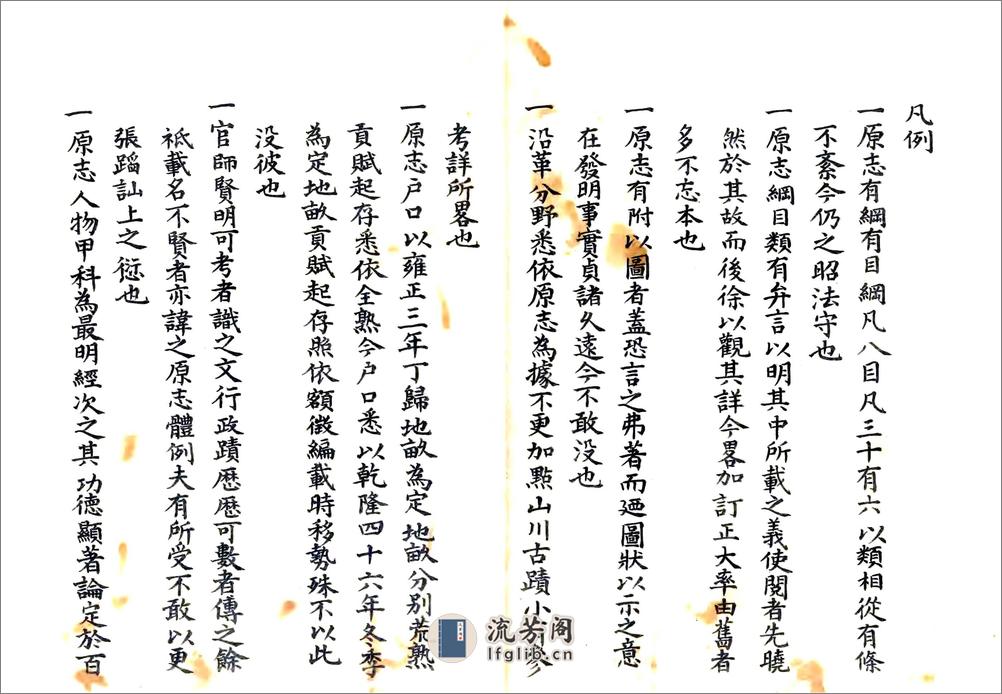 凡例
一原志有綱有目綱凡八目凡三十有六以類相從有條
不紊今仍之昭法守也
一原志綱目類有弁言以明其中所載之義使閱者先曉
然於其故而後徐以觀其詳今畧加訂正大率由舊者
多不忘本也
一原志有附以圖者蓋恐言之弗著而廼圖狀以示之意
在發明事實貞諸久遠今不敢没也
一沿革分野悉依原志為據不更加點山川古蹟小有參
考詳所畧也
一原志戶口以雍正三年丁歸地畝為定地畝分別荒熟
貢賦起存悉依全熟今戶口悉以乾隆四十六年冬季
為定地畝貢賦起存照依額徵編載時移勢殊不以此
没彼也
一官師賢明可考者識之文行政蹟歷歷可數者傳之餘
祇載名不賢者亦諱之原志體例夫有所受不敢以更
張蹈訕上之愆也
一原志人物甲科為最明經次之其功德顯著論定於百
流芳阁
lfglib.cn